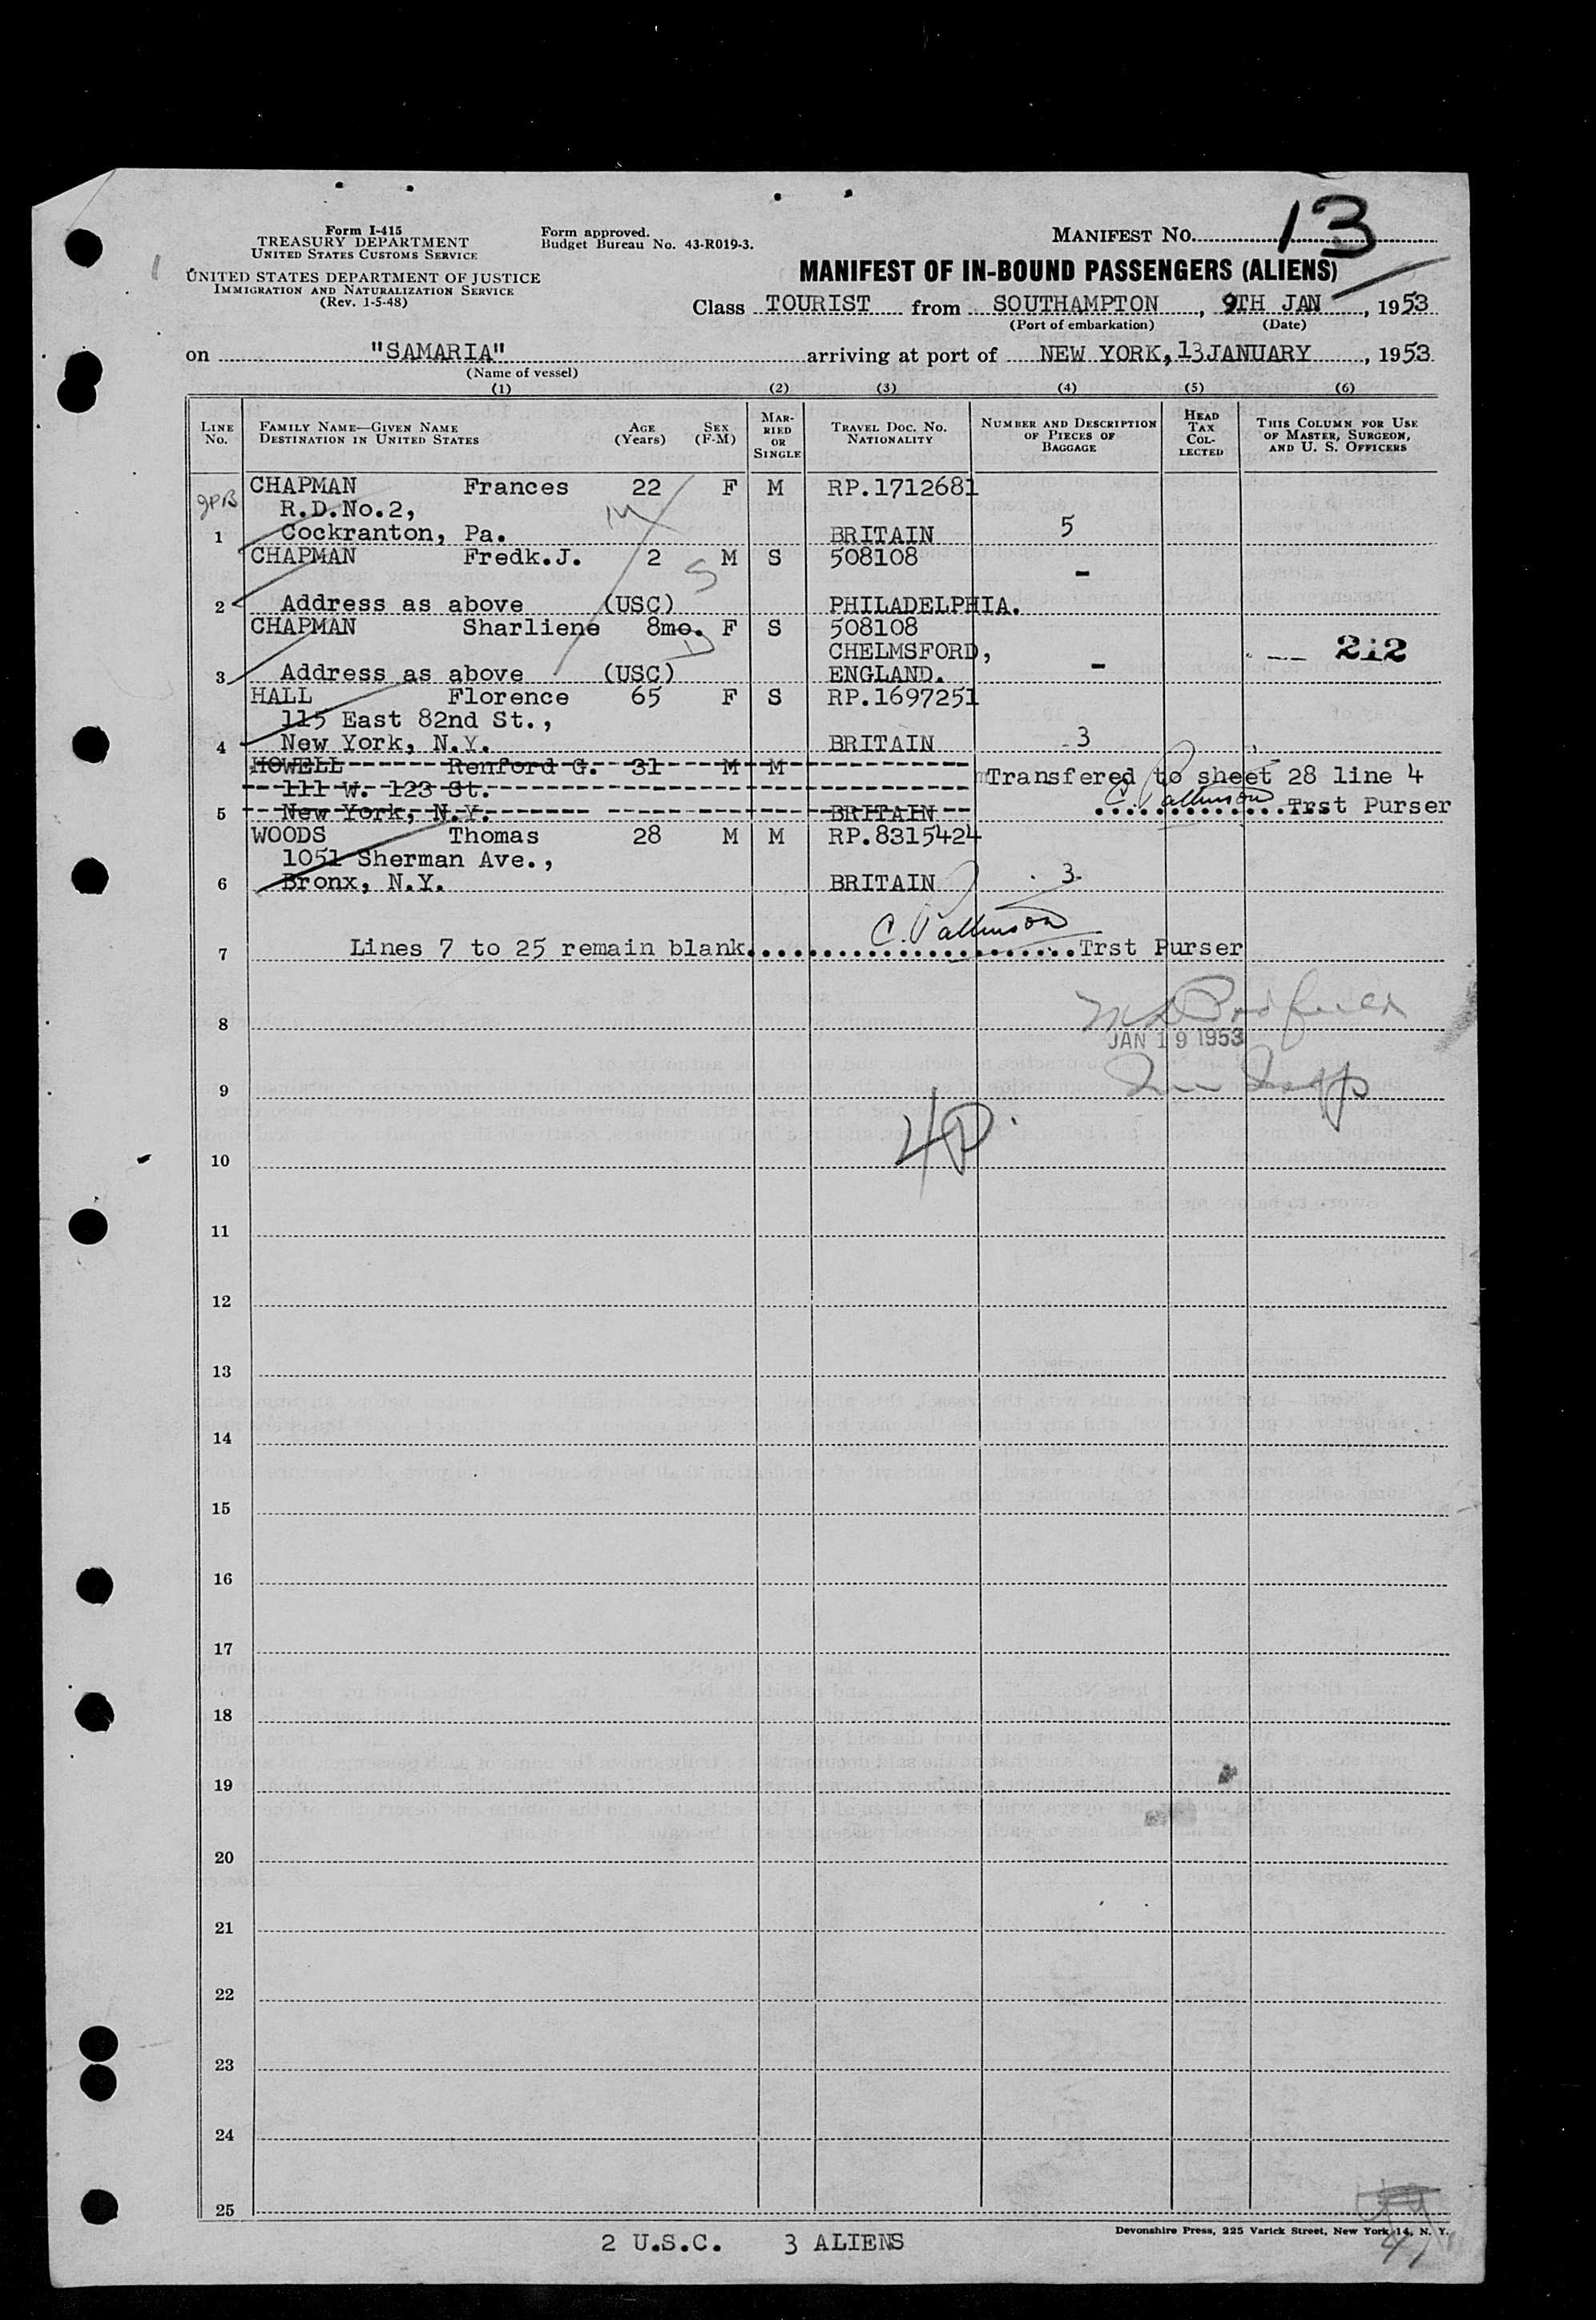 13
Form I-415
TREASURY DEPARTMENT
UNITED STATES CUSTOMS SERVICE
UNITED STATES DEPARTMENT OF JUSTICE
IMMIGRATION AND NATURALIZATION SERVICE
(Rev. 1-5-48)
Form approved.
Budget Bureau No. 43-R019-3.
MANIFEST NO.
MANIFEST OF IN-BOUND PASSENGERS (ALIENS)
Class TOURIST from SOUTHAMPTON, 9TH JAN, 1953
(Port of embarkation) (Date)
on "SAMARIA" arriving at port of NEW YORK, 13 JANUARY, 1953
(Name of vessel)
(1) (2) (3) (4) (5) (6)
LINE NO. FAMILY NAME—GIVEN NAME DESTINATION IN UNITED STATES AGE (Years) SEX (F-M) MARRIED OR SINGLE TRAVEL DOC. NO. NATIONALITY NUMBER AND DESCRIPTION OF PIECES OF BAGGAGE HEAD TAX COLLECTED THIS COLUMN FOR USE OF MASTER, SURGEON, AND U. S. OFFICERS
CHAPMAN Frances 22 F M RP.1712681
R.D.No.2,
1 Cockranton, Pa. BRITAIN 5
CHAPMAN Fredk.J. 2 M S 508108
-
2 Address as above (USC) PHILADELPHIA.
CHAPMAN Sharliene 8mo. F S 508108
CHELMSFORD, 212
3 Address as above (USC) ENGLAND. -
HALL Florence 65 F S RP.1697251
115 East 82nd St.,
4 New York, N.Y. BRITAIN 3
HOWELL Renford G. 31 M M
111 W. 123 St. Transfered to sheet 28 line 4
5 New York, N.Y. BRITAIN C. Pattinson Trst Purser
WOODS Thomas 28 M M RP.8315424
1051 Sherman Ave.,
6 Bronx, N.Y. BRITAIN 3
C. Pattinson
7 Lines 7 to 25 remain blank Trst Purser
8
JAN 19 1953
9
10
11
12
13
14
15
16
17
18
19
20
21
22
23
24
25
2 U.S.C. 3 ALIENS
Devonshire Press, 225 Varick Street, New York 14, N. Y.